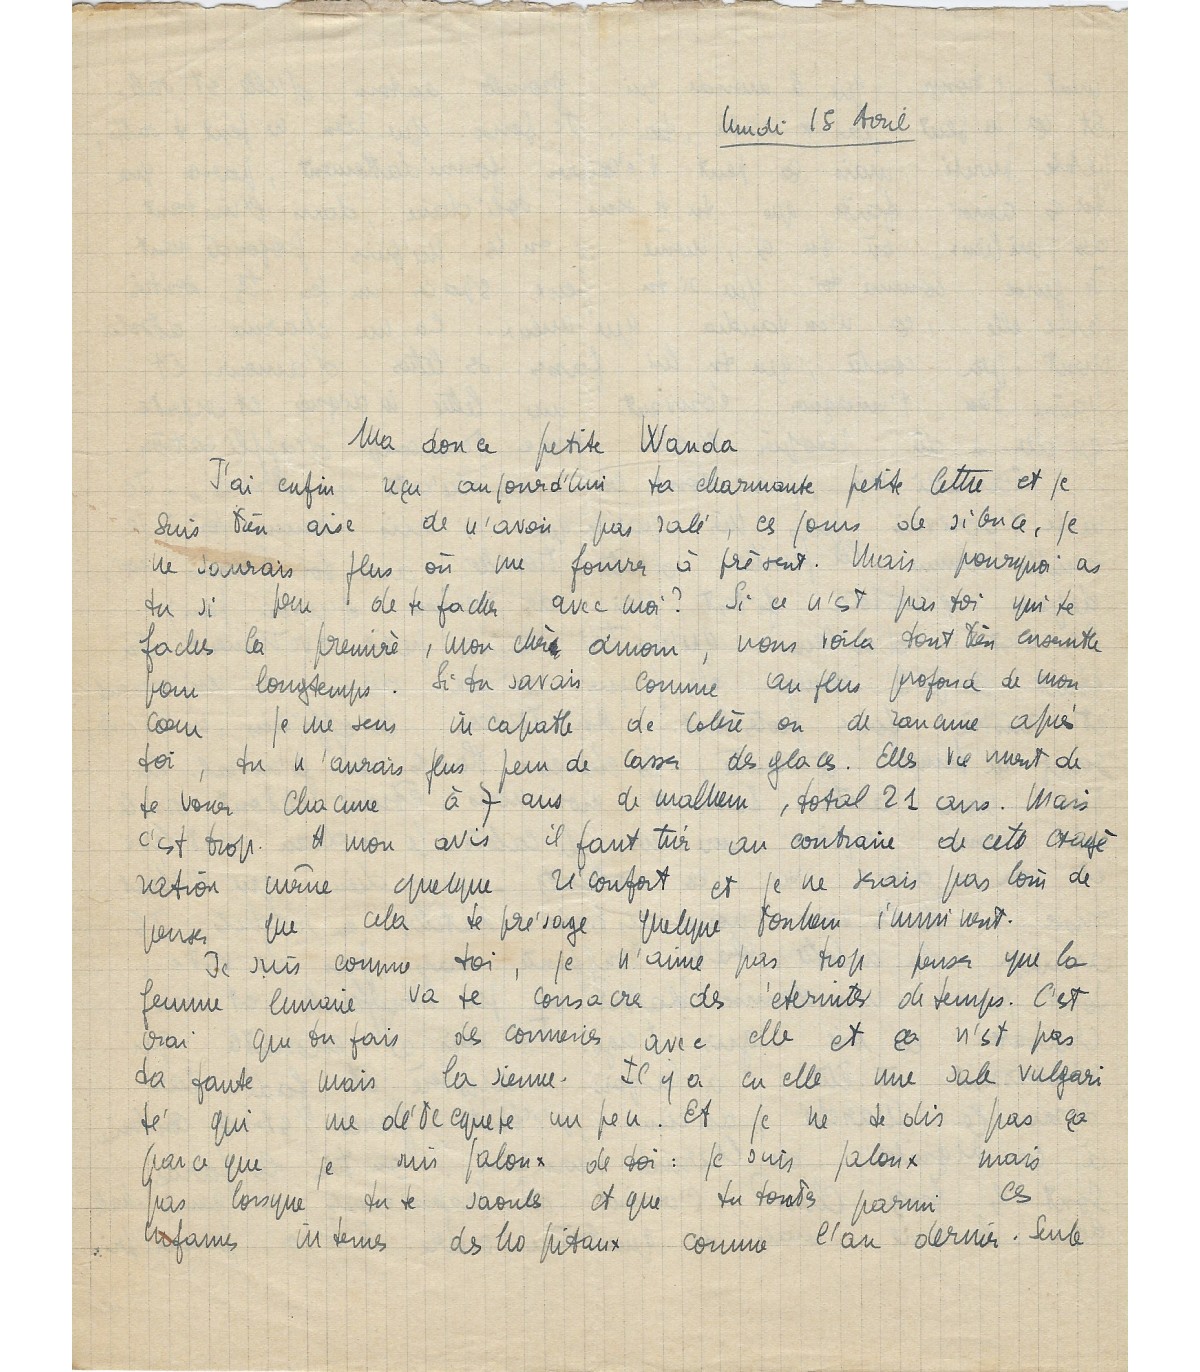 lundi 15 Avril
Ma douce petite Wanda
J'ai enfin reçu aujourd'hui ta charmante petite lettre et je
suis bien aise de n'avoir pas salé, ces jours de silence, je
ne saurais plus où me fourrer à présent. Mais pourquoi as
tu si peur de te facher avec moi? Si ce n'est pas toi qui te
faches la première, mon cher amour, nous voila tout bien ensemble
pour longtemps. Si tu savais comme au plus profond de mon
coeur je me sens incapable de colère ou de rancune après
toi, tu n'aurais plus peur de casser des glaces. Elles viennent de
te vouer chacune à 7 ans de malheur, total 21 ans. Mais
c'est trop. A mon avis il faut tirer au contraire de cette exagé
ration même quelque réconfort et je ne serais pas loin de
penser que cela te présage quelque bonheur imminent.
Je suis comme toi, je n'aime pas trop penser que la
femme lunaire va te consacrer des éternités de temps. C'est
vrai que tu fais des conneries avec elle et ça n'est pas
ta faute mais la sienne. Il y a en elle une sale vulgari
té qui me débecquete un peu. Et je ne te dis pas ça
parce que je suis jaloux de toi: je suis jaloux mais
pas lorsque tu te saoules et que tu tombes parmi ces
infames internes des hopitaux comme l'an dernier. Seule